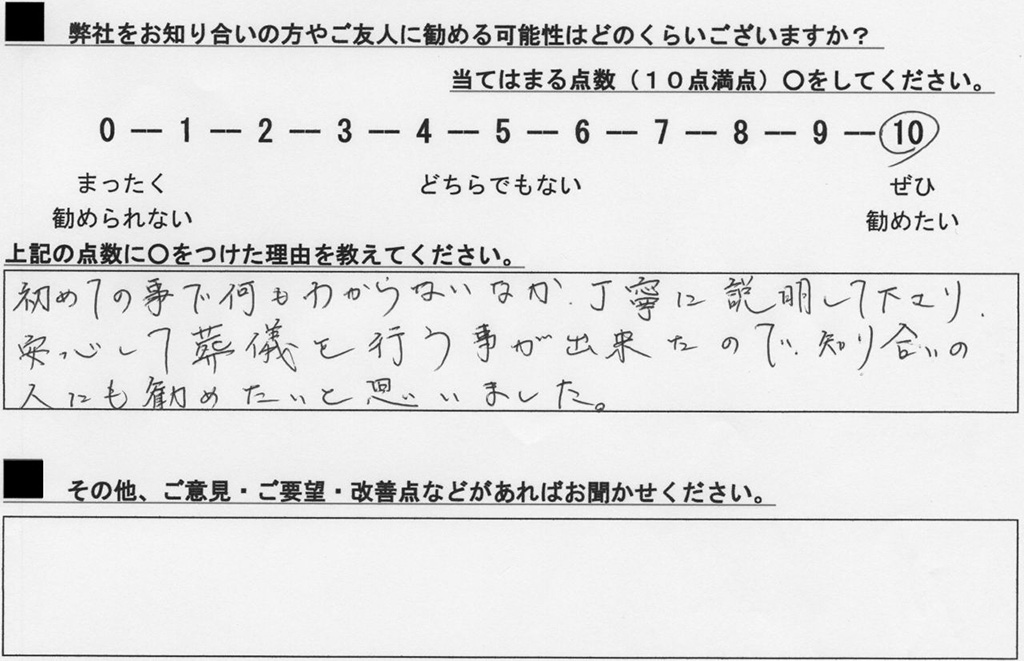 弊社をお知り合いの方やご友人に勧める可能性はどのくらいございますか？
当てはまる点数（１０点満点）〇をしてください。
0 ― 1 ― 2 ― 3 ― 4 ― 5 ― 6 ― 7 ― 8 ― 9 ― 10
まったく どちらでもない ぜひ
勧められない 勧めたい
上記の点数に〇をつけた理由を教えてください。
初めての事で何もわからないなか、丁寧に説明して下さり、
安心して葬儀を行う事が出来たので、知り合いの
人にも勧めたいと思いました。
その他、ご意見・ご要望・改善点などがあればお聞かせください。